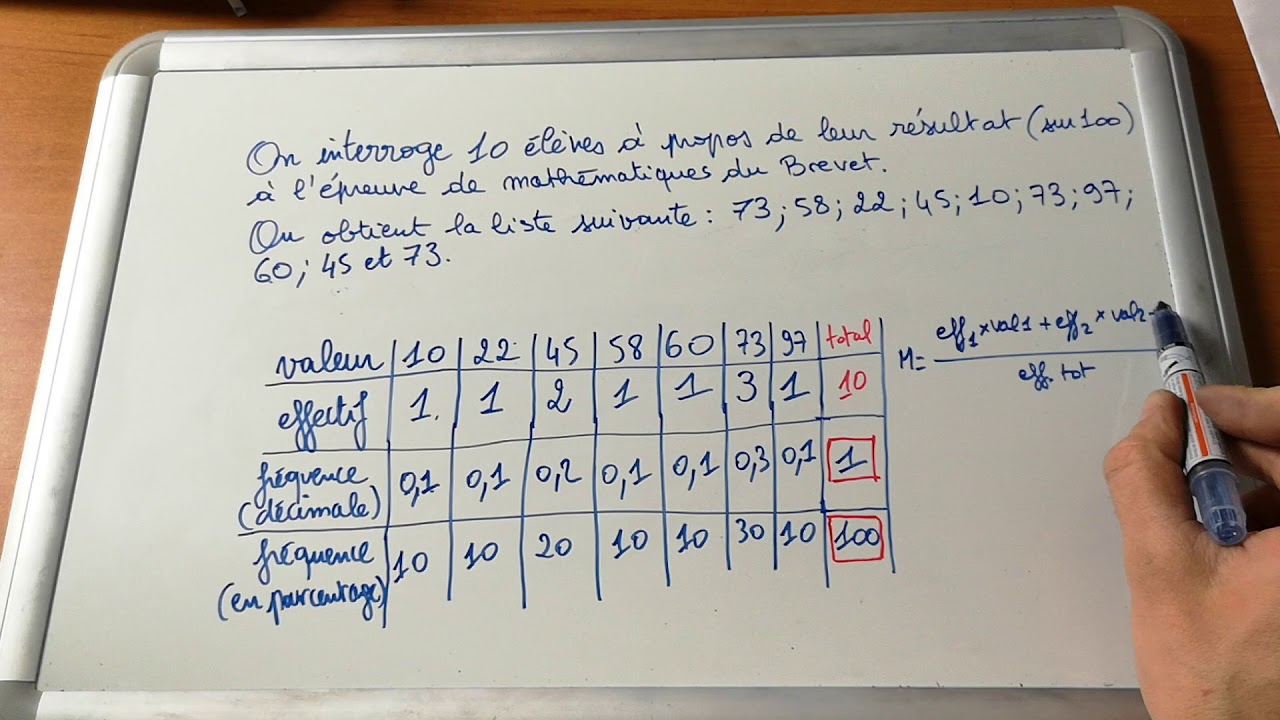 On interroge 10 élèves à propos de leur résultat (sur 100)
à l'épreuve de mathématiques du Brevet.
On obtient la liste suivante : 73 ; 58 ; 22 ; 45 ; 10 ; 73 ; 97 ;
60 ; 45 et 73.
valeur 10 22 45 58 60 73 97 total
effectif 1 1 2 1 1 3 1 10
fréquence
(décimale) 0,1 0,1 0,2 0,1 0,1 0,3 0,1 1
fréquence
(en pourcentage) 10 10 20 10 10 30 10 100
M = eff1 × val1 + eff2 × val2
eff. tot